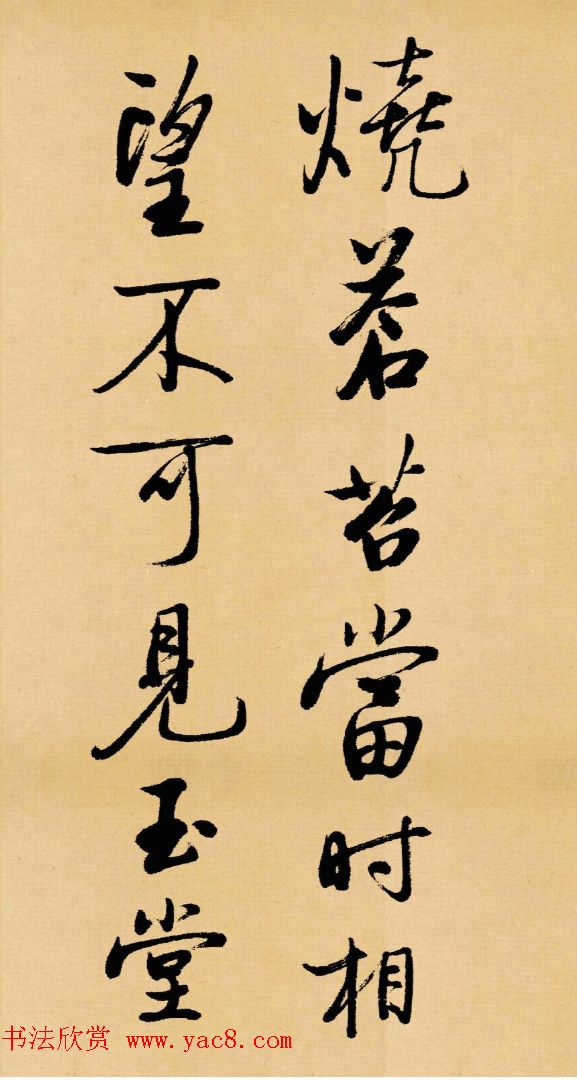 燒蒼苔當时相
望不可見玉堂
书法欣赏 www.yac8.com